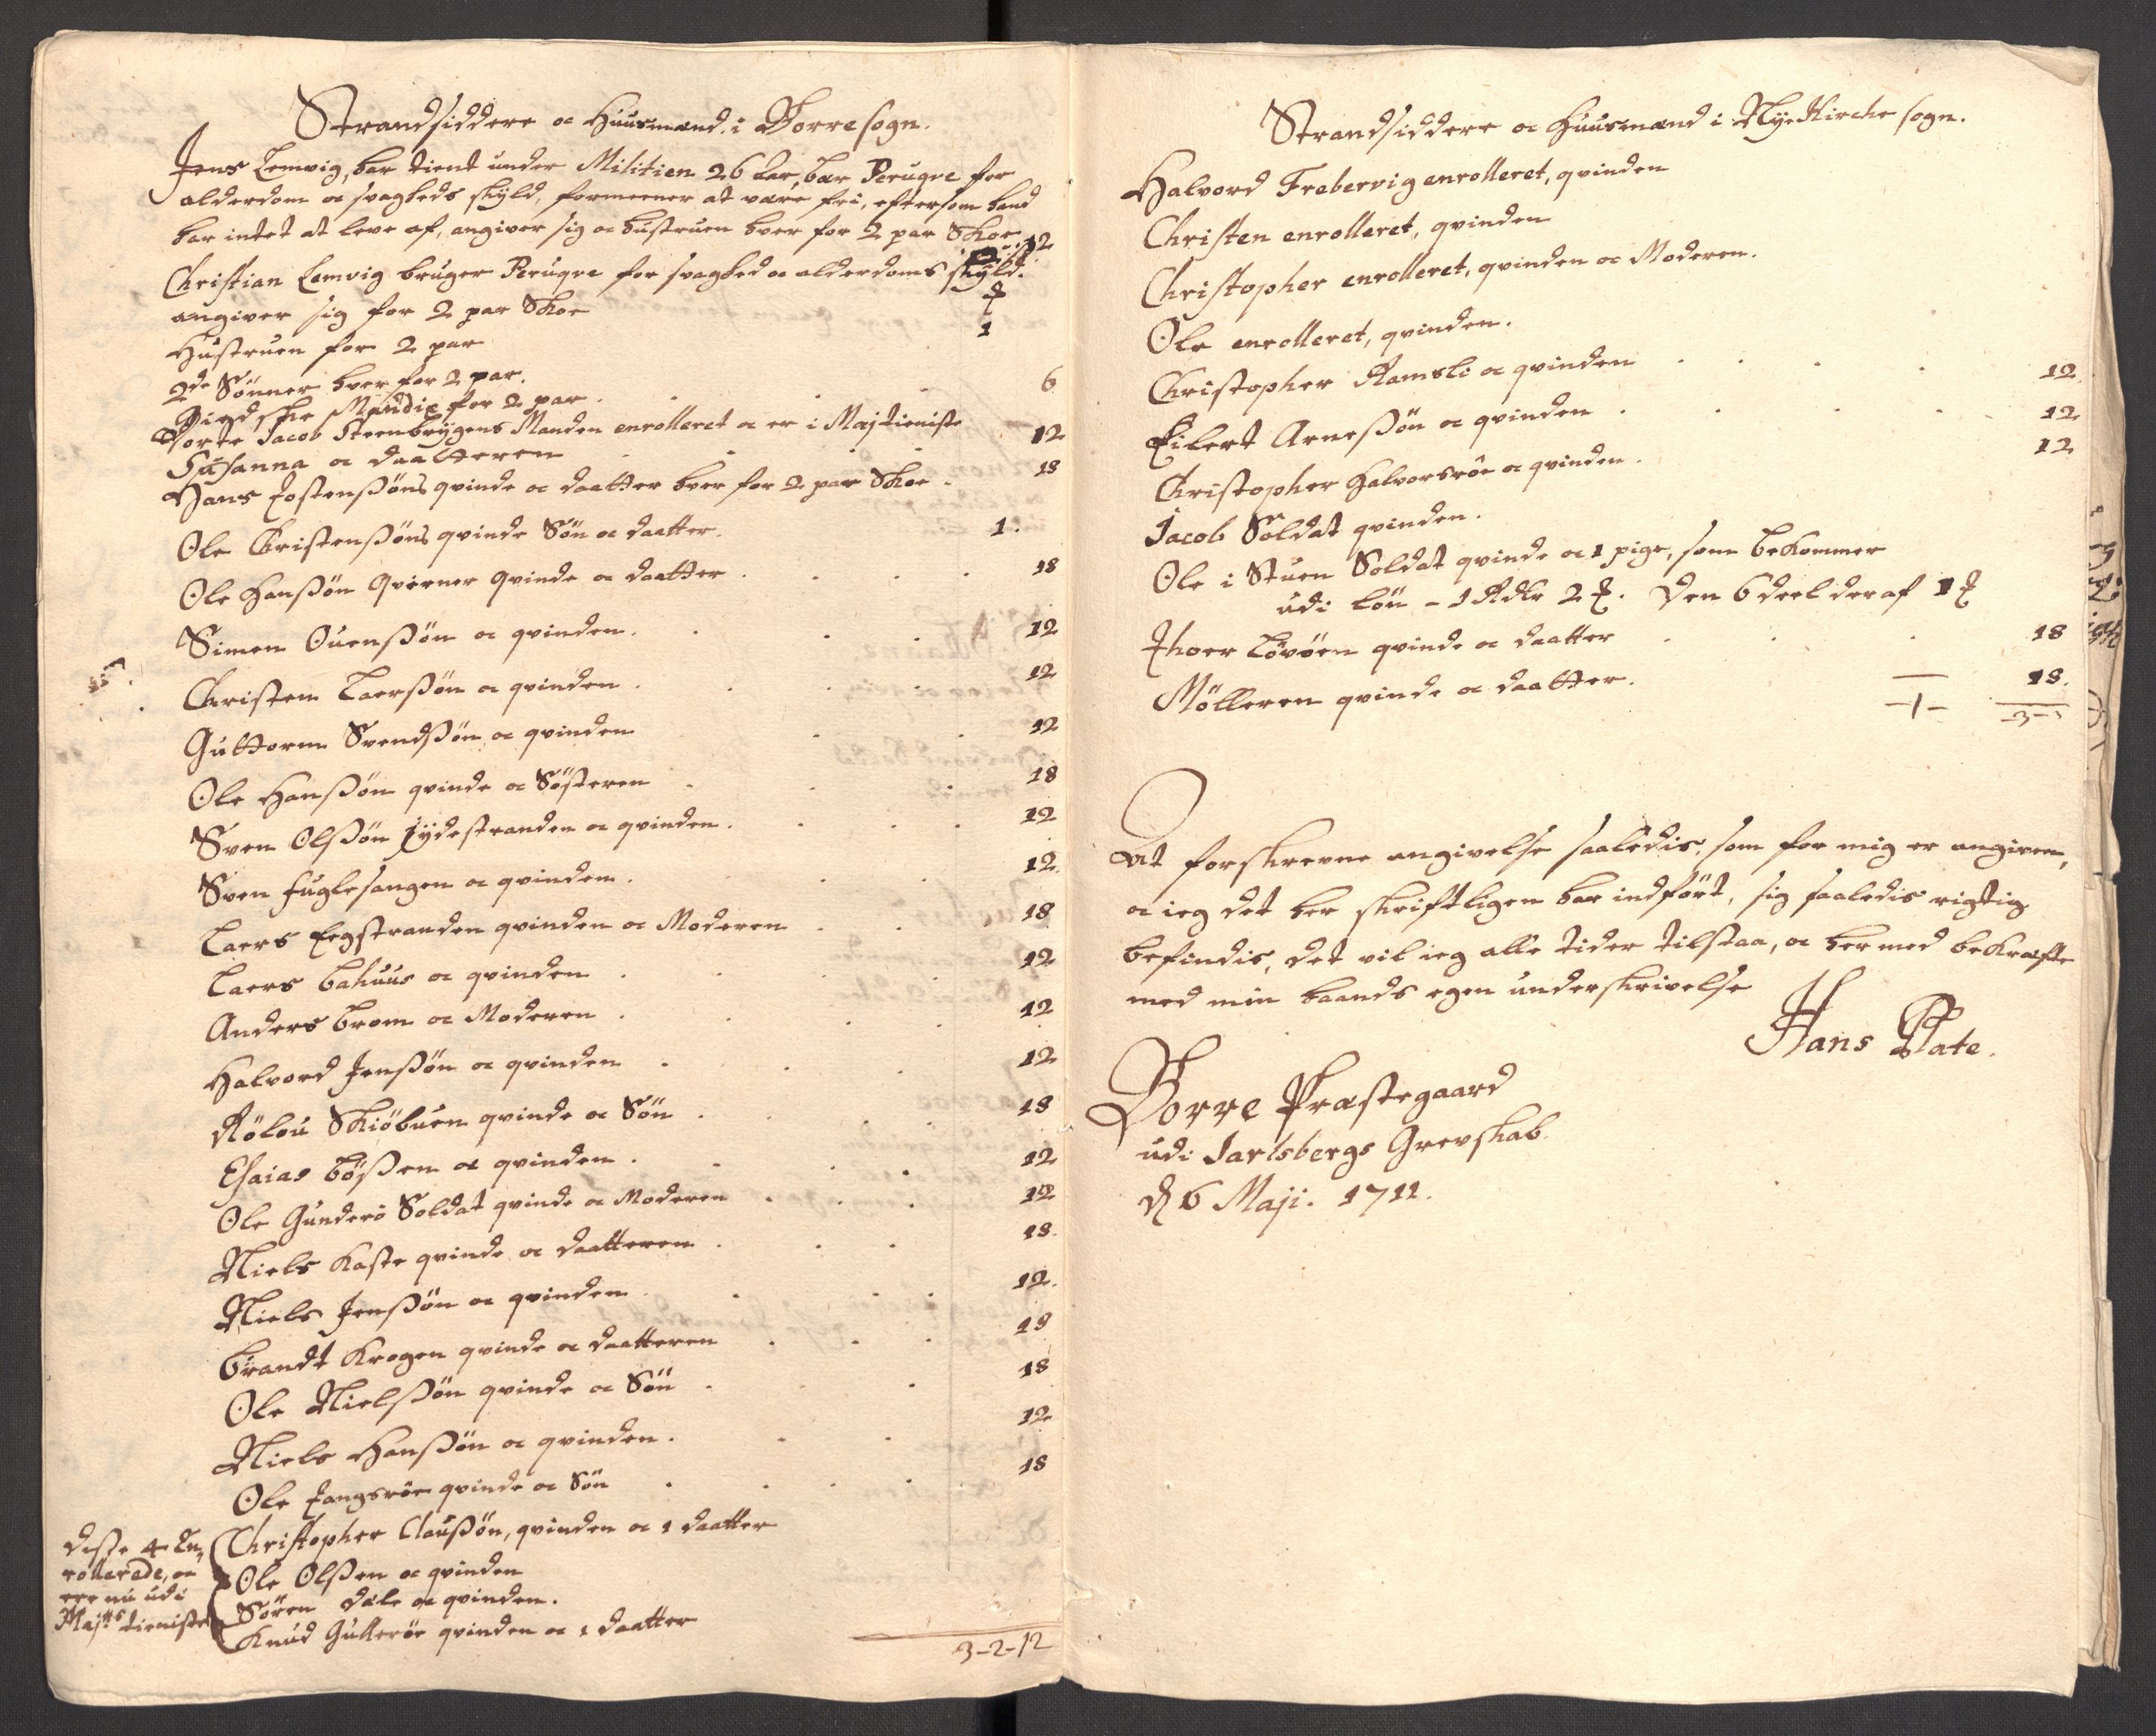 Strandsiddere oc Huusmænd i Borre sogn.
Jens Lemvig, har tient under Militien 26 aar, bær Peruqve for
alderdom oc svagheds skyld, formeener at være fri, eftersom hand
har intet at leve af, angiver sig oc hustruen hver for 2 par Skoe
12
Christian Lemvig bruger Peruqve for svaghed oc alderdoms skyld.
angiver sig for 2 par Skoe
Hustruen for 2 par 1
2de Sønner hver for 2 par.
for 2 par . . . 6
Dorte Jacob Steenbrygens Manden enrolleret oc er i Maj tieniste
Susanna oc daatteren . . . 12
Hans Jostensøns qvinde oc daatter hver for 2 par Skoe . 18
Ole Christensøns qvinde Søn oc daatter. 1.
Ole Hansøn Qverner Qvinde oc daatter . . . 18
Simen Ouensøn oc qvinden . . . 12
Christen Laersøn oc qvinden . . . 12
Guttorm Svendsøn oc qvinden . . 12
Ole Hansøn qvinde oc Søsteren . . . 18
Sven Olsøn Jydestranden oc qvinden . . . 12
Sven Fuglesangen oc qvinden . . . 12
Laers Eegstranden qvinden oc Moderen . . 18
Laers Bahuus oc qvinden . . . 12
Anders Brom oc Moderen . . . 12
Halvord Jensøn oc qvinden . . . 12
Rølou Skiøbuen qvinde oc Søn . . . 18
Esaias Bøssen oc qvinden . . . 12
Ole Gunderø Soldat qvinde oc Moderen . . . 12
Niels Kaste qvinde oc daatteren . . . 18.
Niels Jensøn oc qvinden . . . 12.
Brandt Krogen qvinde oc daatteren . . . 18
Ole Nielsøn qvinde oc Søn . . . 18
Niels Hansøn oc qvinden . . . 12
Ole Langsrøe qvinde oc Søn . . . 18
Desse 4 En-
rollerede, oc
ere nu udi
Majts tieniste
Christopher Clausøn, qvinden oc 1 daatter
Ole Olsen oc qvinden
Søren Dale oc qvinden.
Knud Gullerøe qvinden oc 1 daatter
3-2-12
Strandsiddere oc Huusmænd i Nye Kirche sogn.
Halvord Frebervig enrolleret, qvinden
Christen enrolleret, qvinden
Christopher enrolleret, qvinden oc Moderen.
Ole enrolleret, qvinden.
Christopher Ramsli oc qvinden . . . 12
Eilert Arnesøn oc qvinden . . . 12
Christopher Halvorsrøe oc qvinden . 12
Jacob Soldat qvinden.
Ole i Stuen Soldat qvinde oc 1 pige, som bekommer
udi Løn - 1 Rdlr 2 . Den 6 deel deraf 1
Thoer Løvøen qvinde oc daatter . . . 18
Mølleren qvinde oc daatter. 18.
-1- -3-
At forskrevne angivelse saaledis, som for mig er angiven,
oc ieg det her skriftligen har indført, sig saaledis rigtig
befindis, det vil ieg alle tider tilstaa, oc her med bekræfte
med min haands egen underskrivelse
Hans Plate.
Borre Præstegaard
udi Jarlsbergs Grevskab.
d 6 Maji. 1711.